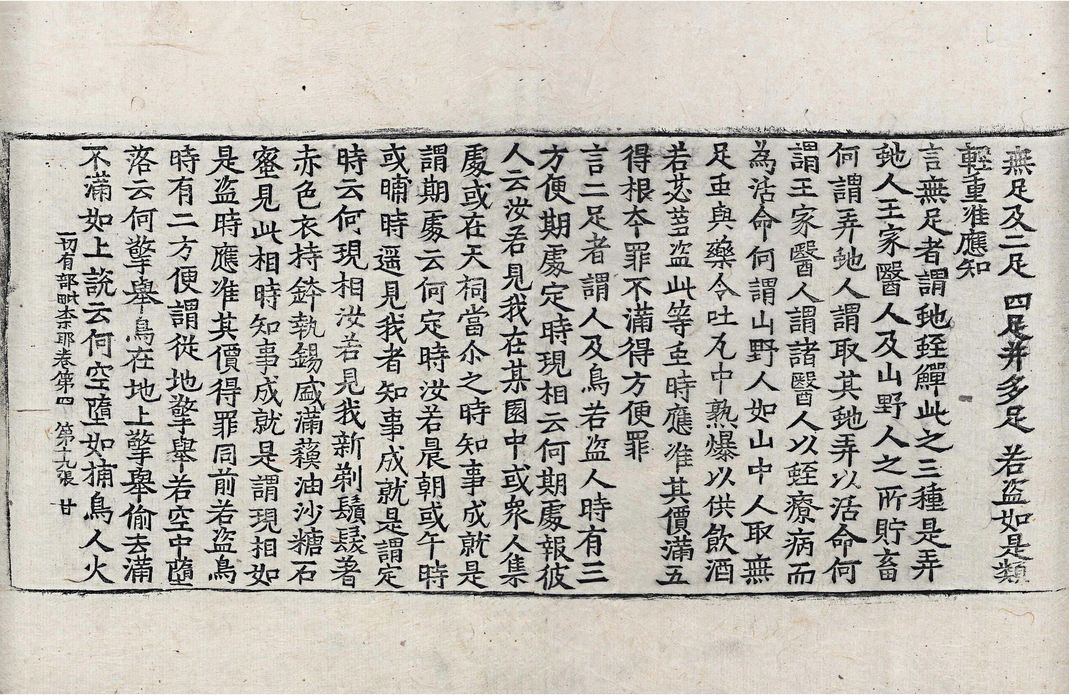 無足及二足 四足并多足 若盜如是類
輕重准應知
言無足者謂虵蛭鱓此之三種是弄
虵人王家醫人及山野人之所貯畜
何謂弄虵人謂取其虵弄以活命何
謂王家醫人謂諸醫人以蛭療病而
為活命何謂山野人如山中人取無
足虫與藥令吐瓦中熟爆以供飲酒
若苾芻盜此等虫時應准其價滿五
得根夲罪不滿得方便罪
言二足者謂人及鳥若盜人時有三
方便期處定時現相云何期處報彼
人云汝若見我在某園中或衆人集
處或在天祠當尒之時知事成就是
謂期處云何定時汝若晨朝或午時
或晡時遥見我者知事成就是謂定
時云何現相汝若見我新剃鬚髮著
赤色衣持鉢執錫盛滿蘇油沙糖石
蜜見此相時知事成就是謂現相如
是盜時應准其價得罪同前若盜鳥
時有二方便謂從地擎舉若空中墮
落云何擎舉鳥在地上擎舉偷去滿
不滿如上說云何空墮如捕鳥人火
一切有部毗柰耶卷第四 第十九張 甘